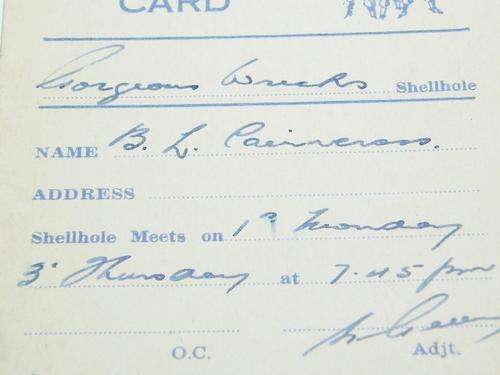 CARD
Gorgeous Wrecks Shellhole
NAME B. L. Cairncross.
ADDRESS
Shellhole Meets on 1st Monday
3rd Thursday at 7.45 pm
O.C. Adjt.